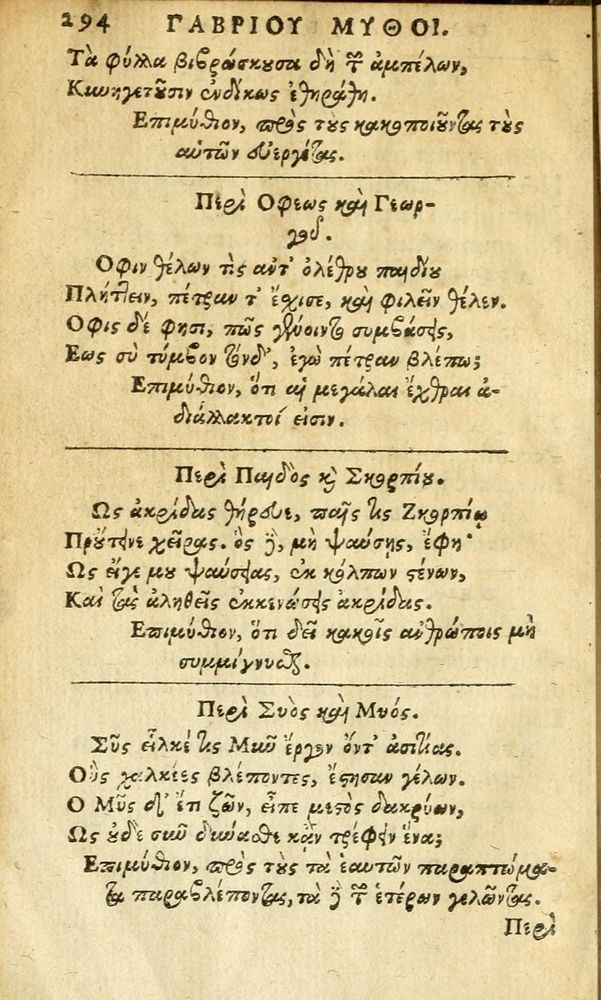 294 ΓΑΒΡΙΟΥ ΜΥΘΟΙ.
Τὰ φύλλα βιβράσκουσα δὴ τῶν ἀμπέλων,
Κυνηγετοῦσιν ἐνδίκως ἐθηράθη.
Επιμύθιον, πρὸς τοὺς κακοποιοῦντας τοὺς
αὐτῶν εὐεργέτας.
Περὶ Οφεως καὶ Γεωρ-
γοῦ.
Οφιν θέλων τὶς ἀντ' ὀλέθρου παιδίου
Πλήττειν, πέτραν τ' ἔσχισε, καὶ φιλεῖν θέλεν.
Οφις δέ φησι, πῶς γένοιντο συμβάσεις,
Εως σὺ τύμβον τόνδ', ἐγὼ πέτραν βλέπω;
Επιμύθιον, ὅτι αἱ μεγάλαι ἔχθραι ἀ-
διάλλακτοί εἰσιν.
Περὶ Παιδὸς καὶ Σκορπίου.
Ως ἀκρίδας θήρευε, παῖς τις Ζκορπίῳ
Προύτεινε χεῖρας. ὃς δὲ, μὴ ψαύσῃς, ἔφη·
Ως εἴγε μου ψαύσειας, ἐκ κόλπων στένων,
Καὶ τὰς ἀληθεῖς ἐκκενώσεις ἀκρίδας.
Επιμύθιον, ὅτι δεῖ κακοῖς ἀνθρώποις μὴ
συμμίγνυσθαι.
Περὶ Συὸς καὶ Μυός.
Σῦς εἷλκέ τις Μῦν ἔργον ὄντ' ἀσιτίας.
Οὓς χαλκέες βλέποντες, ἔστησαν γέλων.
Ο Μῦς δ' ἔτι ζῶν, εἶπε μεστὸς δακρύων,
Ως οὐδε σῦν δύνασθε κἂν τρέφειν ἕνα;
Επιμύθιον, πρὸς τοὺς τὰ ἑαυτῶν παραπτώμα-
τα παραβλέποντας, τὰ δὲ τῶν ἑτέρων γελῶντας.
Περὶ